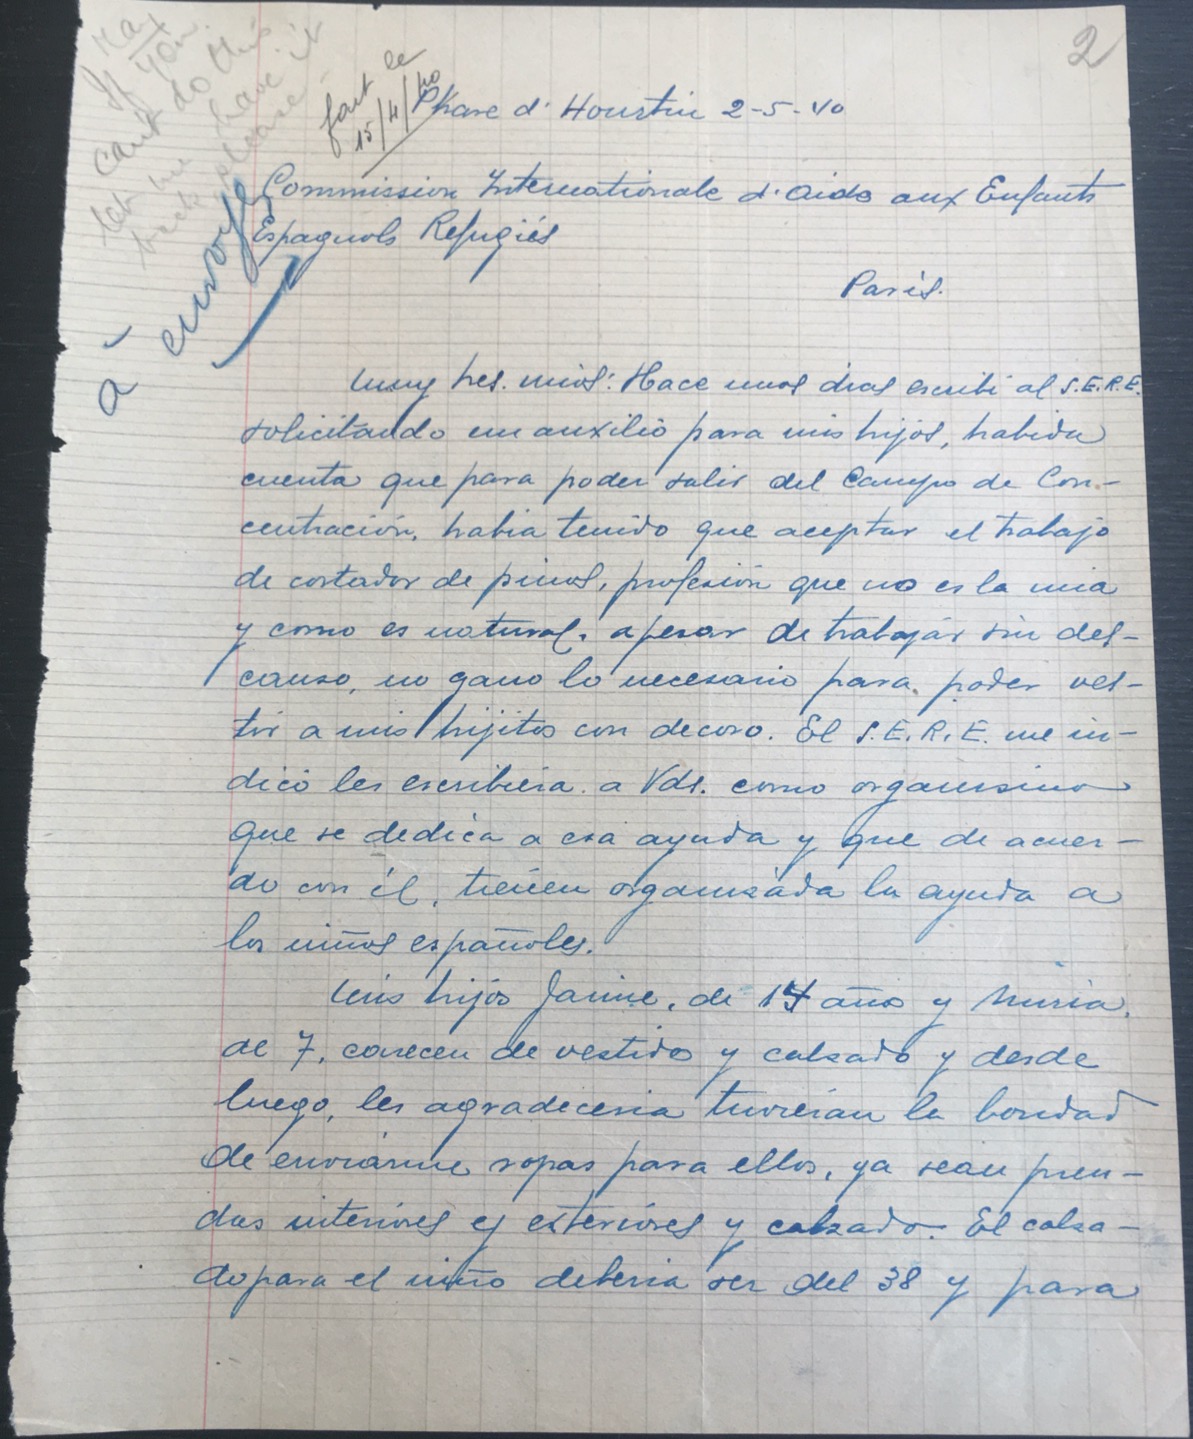 May
If you
can't do this
let me have it
back please
fait le
15/4/40
2
Phare d' Hourtin 2-5-40
Commission Internationale d'Aide aux Enfants
Espagnols Refugiés
à envoyer
Paris.
Muy Sres. mios: Hace unos dias escribi al S.E.R.E.
solicitando un auxilio para mis hijos, habida
cuenta que para poder salir del Campo de Con-
centración, habia tenido que aceptar el trabajo
de cortador de pinos, profesión que no es la mia
y como es natural, apesar de trabajar sin des-
canso, no gano lo necesario para poder ves-
tir a mis hijitos con decoro. El S.E.R.E. me in-
dicó les escribiera a Vds. como organismo
que se dedica a esa ayuda y que de acuer-
do con él, tienen organizada la ayuda a
los niños españoles.
Mis hijos Jaime, de 14 años y Nuria,
de 7, carecen de vestido y calzado y desde
luego, les agradeceria tuvieran la bondad
de enviarme ropas para ellos, ya sean pren-
das interiores y exteriores y calzado. El calza-
do para el niño deberia ser del 38 y para